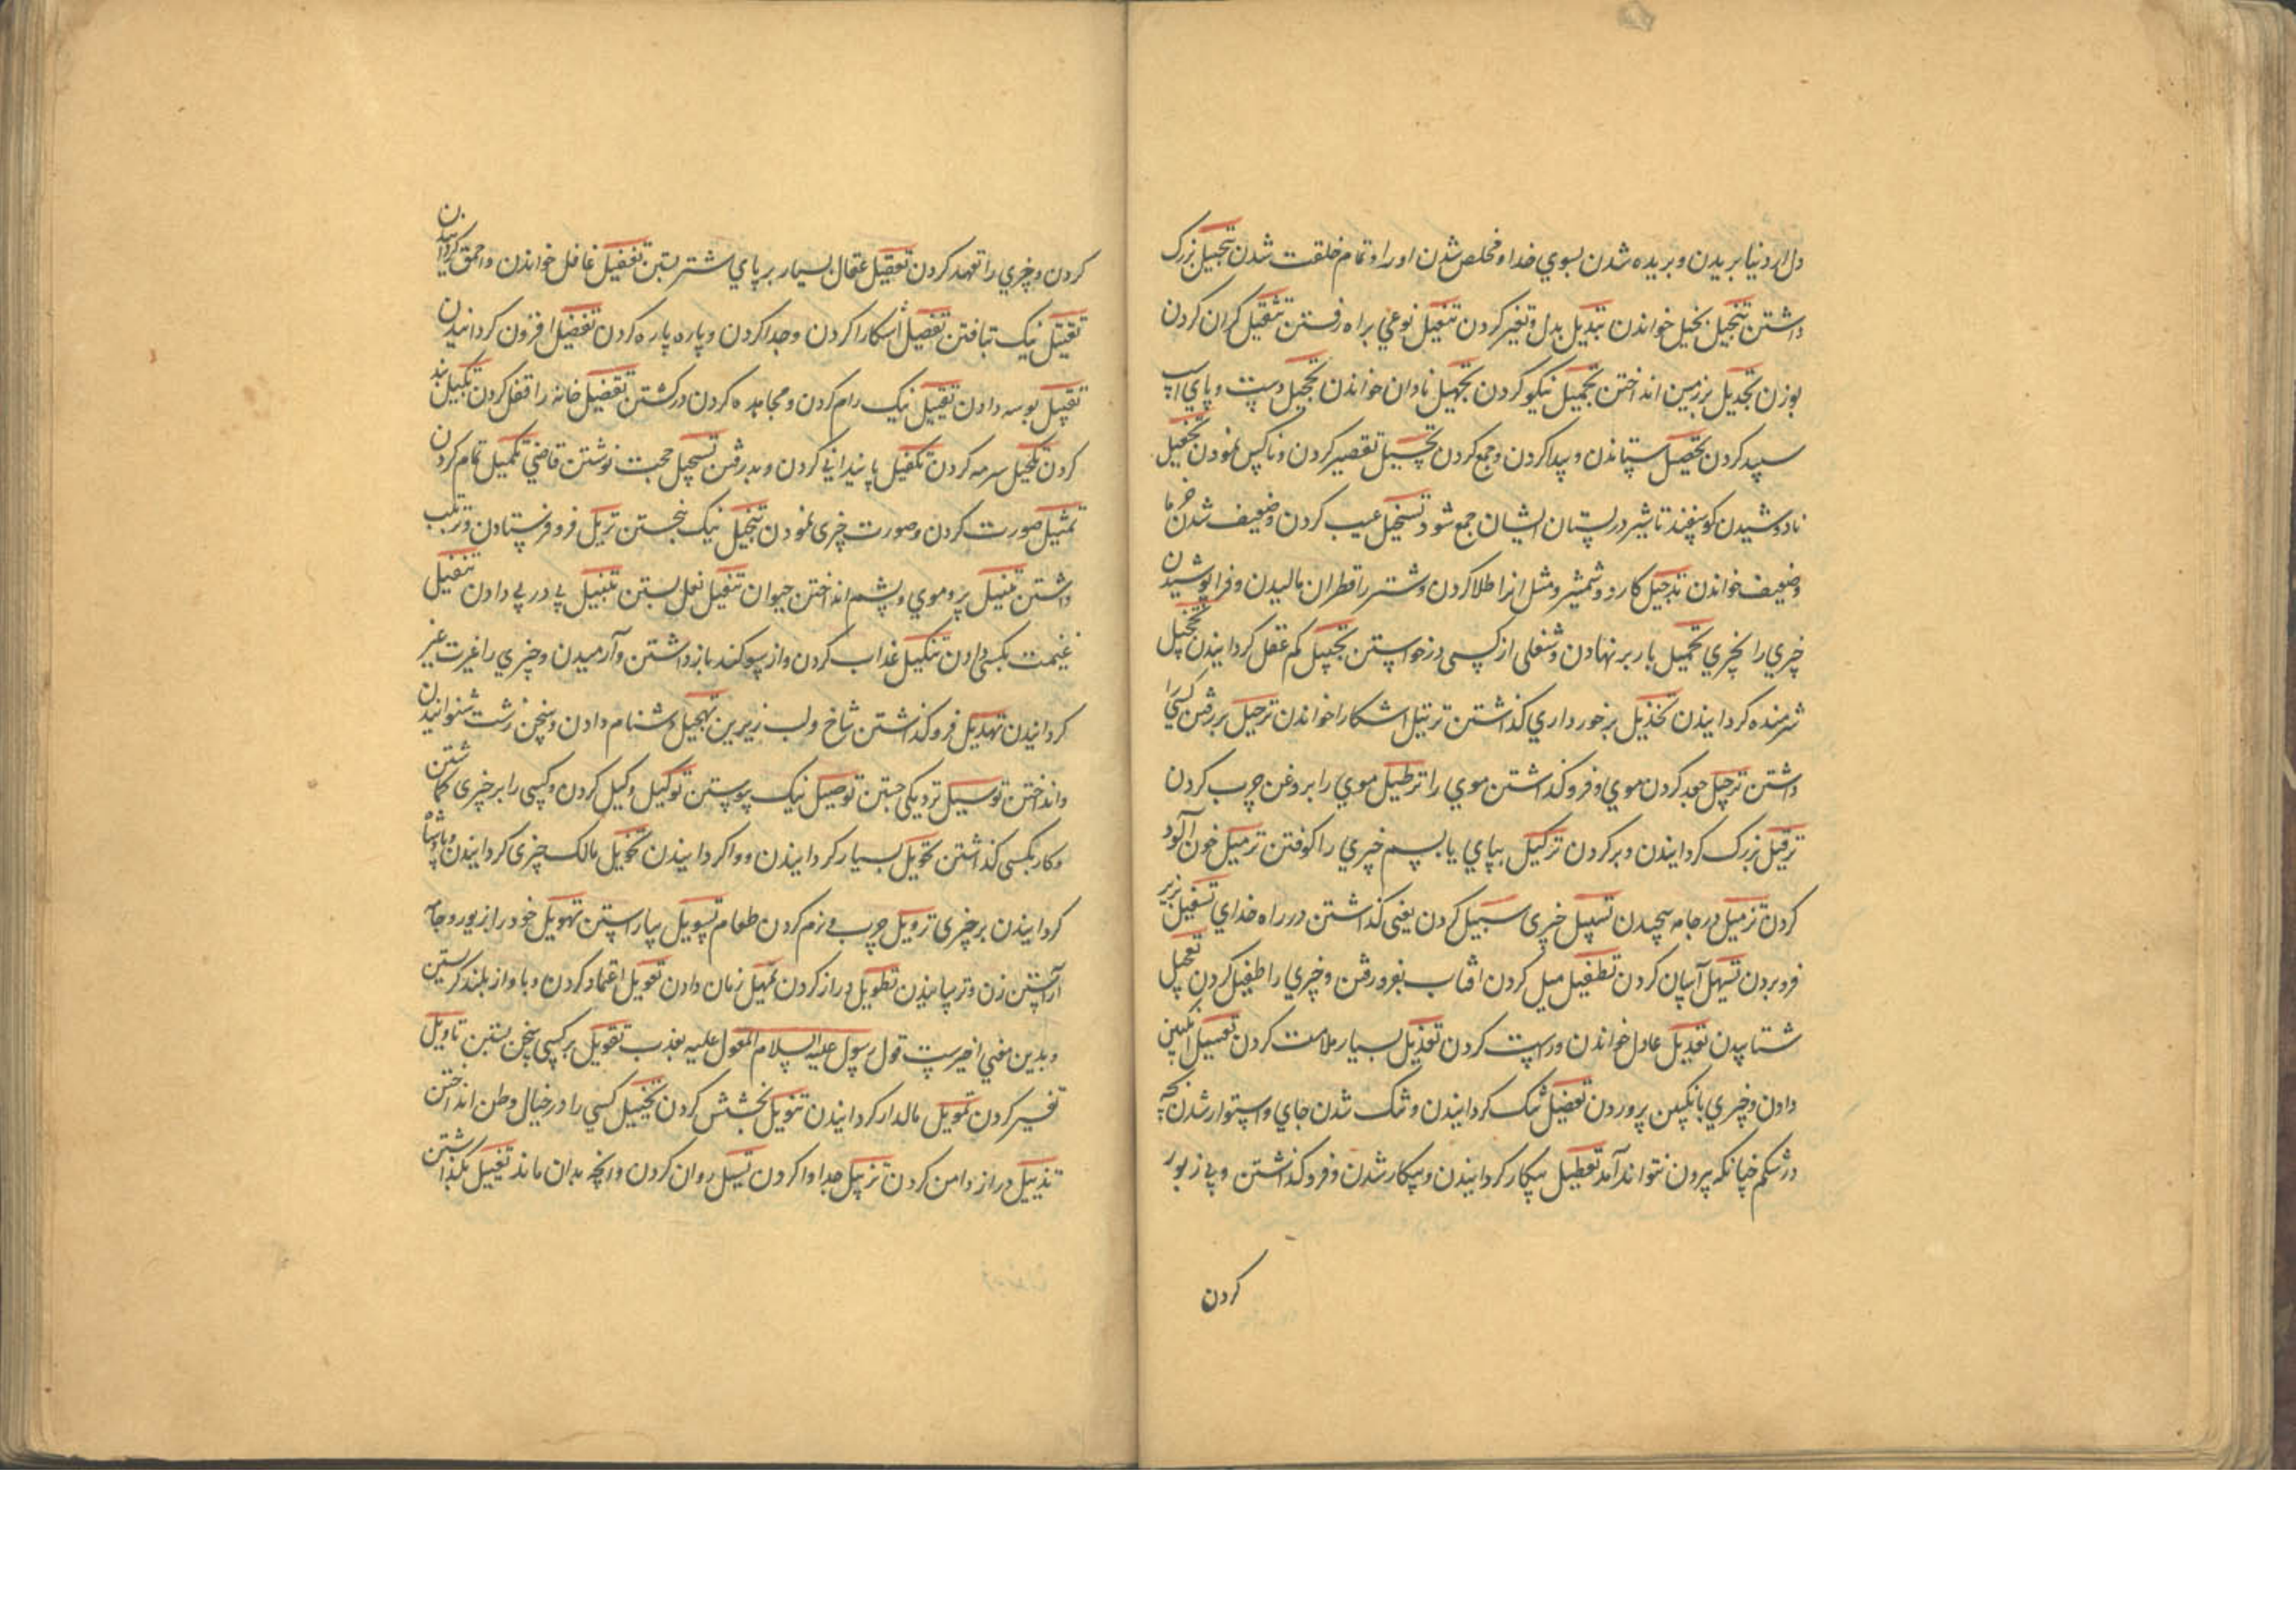 دل از دنیا بریدن و بریده شدن بسوي خدا و مخلص شدن او را و تمام خلقت شدن تبجیل بزرک
داشتن تبخیل بخیل خواندن تبدیل بدل و تغیر کردن تنعیل نوعي براه رفتن تثقیل کران کردن
بوزن تجدیل بر زمین انداختن تجمیل نیکو کردن تجهیل نادان خواندن تحجیل دست و پاي اسپ
سپید کردن تحصیل ستاندن و پیدا کردن و جمع کردن تخسیل تقصیر کردن و ناکس نمودن تحفیل
نادوشیدن کوسفند تا شیر در پستان ایشان جمع شود تسخیل عیب کردن و ضعیف شدن خرما
و ضعیف خواندن تدجیل کارد و شمشیر و مثل انرا طلا کردن و شتر را قطران مالیدن و فرا پوشیدن
چیزي را بچیزي تحمیل بار بر نهادن و شغلی از کسی درخواستن تجهیل کم عقل کردانیدن تخجیل
شرمنده کردانیدن تخذیل برخورداري کذاشتن ترتیل اشکارا خواندن ترحیل بر رفتن کسي را
داشتن ترجیل جعد کردن موي و فرو کذاشتن موي را ترطیل موي را بروغن چرب کردن
ترفیل بزرک کردانیدن و بر کردن ترکیل بپاي یا بسم چیزي را کوفتن ترمیل خون آلود
کردن تزمیل در جامه پیچیدن تسبیل چیزی سبیل کردن یعنی کذاشتن در راه خداي تسفیل بزیر
فرو بردن تسهیل آسان کردن تطفیل میل کردن افتاب بفرو رفتن و چیزي را طفیل کردن تعجیل
شتابیدن تعدیل عادل خواندن و راست کردن تعذیل بسیار ملامت کردن تعسیل انکبین
دادن و چیزي بانکبین پروردن تعضیل تنک کردانیدن و تنک شدن جاي و استوار شدن بچه
در شکم چنانکه بیرون نتواند آمد تعطیل بیکار کردانیدن و بیکار شدن و فرو کذاشتن و بي زیور
کردن
کردن و چیزي را تعهد کردن تعقیل عقال بسیار بر پاي شتر بستن تغفیل غافل خواندن و احمق کردانیدن
تفتیل نیک تافتن تفصیل آشکارا کردن و جدا کردن و پاره پاره کردن تفضیل افزون کردانیدن
تقبیل بوسه دادن تقتیل نیک رام کردن و مجاهده کردن در کشتن تقفیل خانه را قفل کردن تکبیل بند
کردن تکحیل سرمه کردن تکفیل پایندانی کردن و پذرفتن تسجیل حجت نوشتن قاضي تکمیل تمام کردن
تمثیل صورت کردن و صورت چیزی نمودن تنخیل نیک بیختن تنزیل فرو فرستادن و ترتیب
داشتن تنسیل پر و موي و پشم انداختن حیوان تنعیل نعل بستن تنبیل پی در پی دادن تنفیل
غنیمت بکسی دادن تنکیل عذاب کردن و از سوکند باز داشتن و آرمیدن و چیزي را عبرت غیر
کردانیدن تهدیل فرو کذاشتن شاخ و لب زیرین تهجیل دشنام دادن و سخن زشت شنوانیدن
و انداختن توسیل نزدیکی جستن توصیل نیک پیوستن توکیل وکیل کردن و کسی را بر چیزی کماشتن
و کار بکسی کذاشتن تحویل بسیار کردانیدن و وا کردانیدن تخویل مالک چیزی کردانیدن و پادشاه
کردانیدن بر چیزی ترویل چرب و نرم کردن طعام تسویل بیاراستن تهویل خود را از زیور و جامه
آراستن زن و ترسانیدن تطویل دراز کردن تمهیل زمان دادن تعویل اعتماد کردن و باواز بلند کریستن
و بدین معني اخیرست قول رسول علیه السلام المعول علیه یعذب تقویل بر کسی سخن بستن تاویل
تفسیر کردن تمویل مالدار کردانیدن تنویل بخشش کردن تخییل کسي را در خیال و ظن انداختن
تذییل دراز دامن کردن تزییل جدا وا کردن تسییل روان کردن و انچه بدان ماند تغییل بکذاشتن